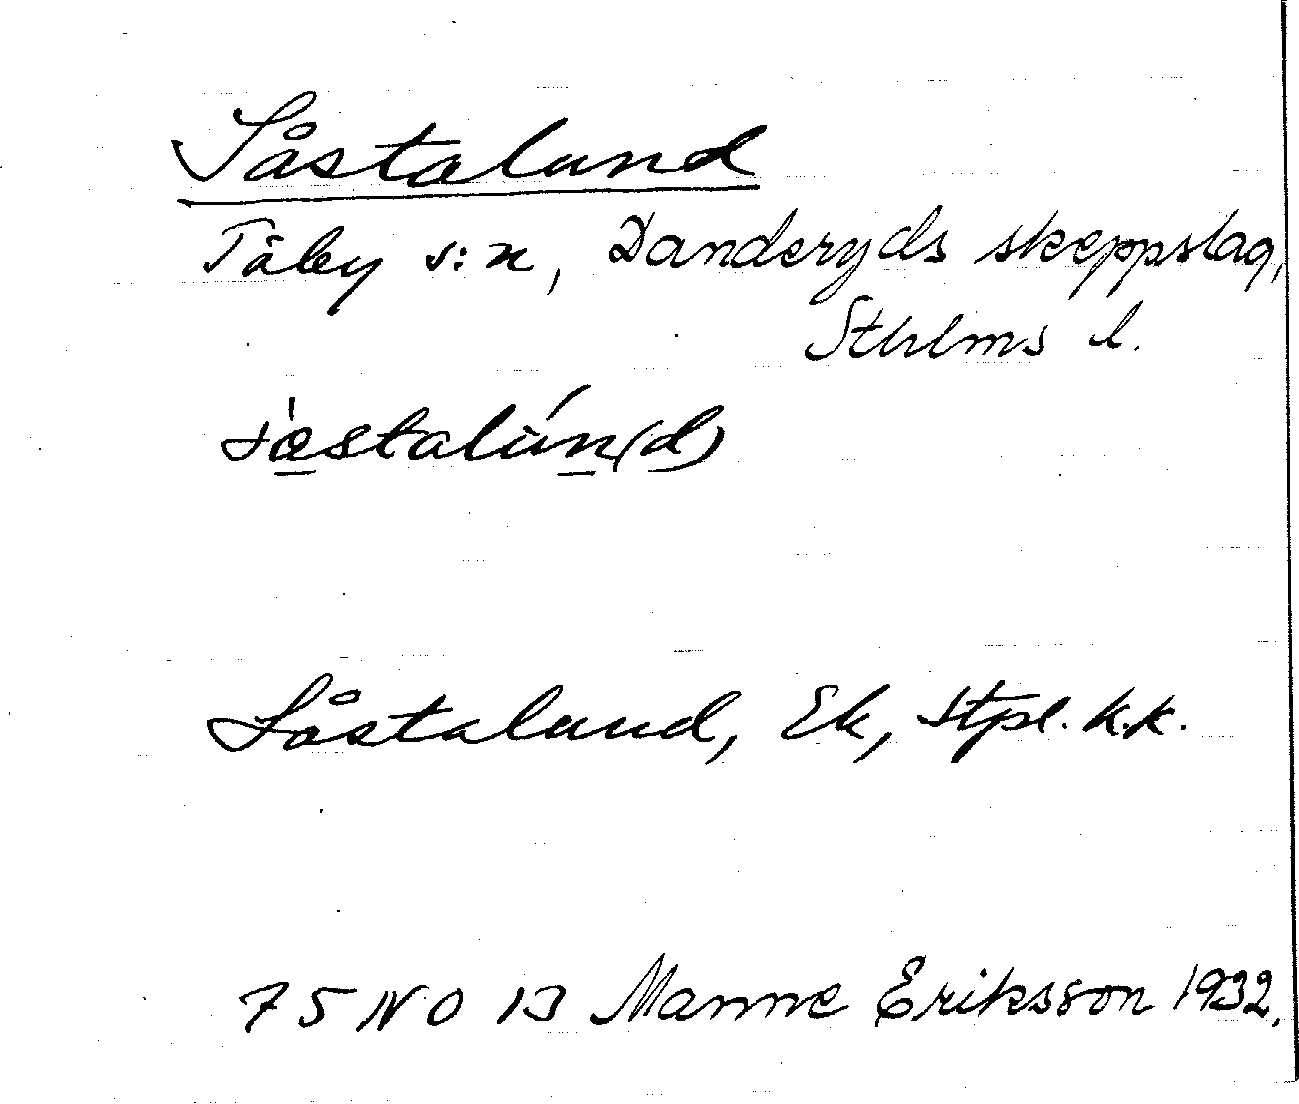 Såstalund
Täby s:n, Danderyds skeppslag,
Sthlms l.
såstalún(d)
Såstalund, Ek, Stpl. k.k.
75 NO 13 Manne Eriksson 1932.